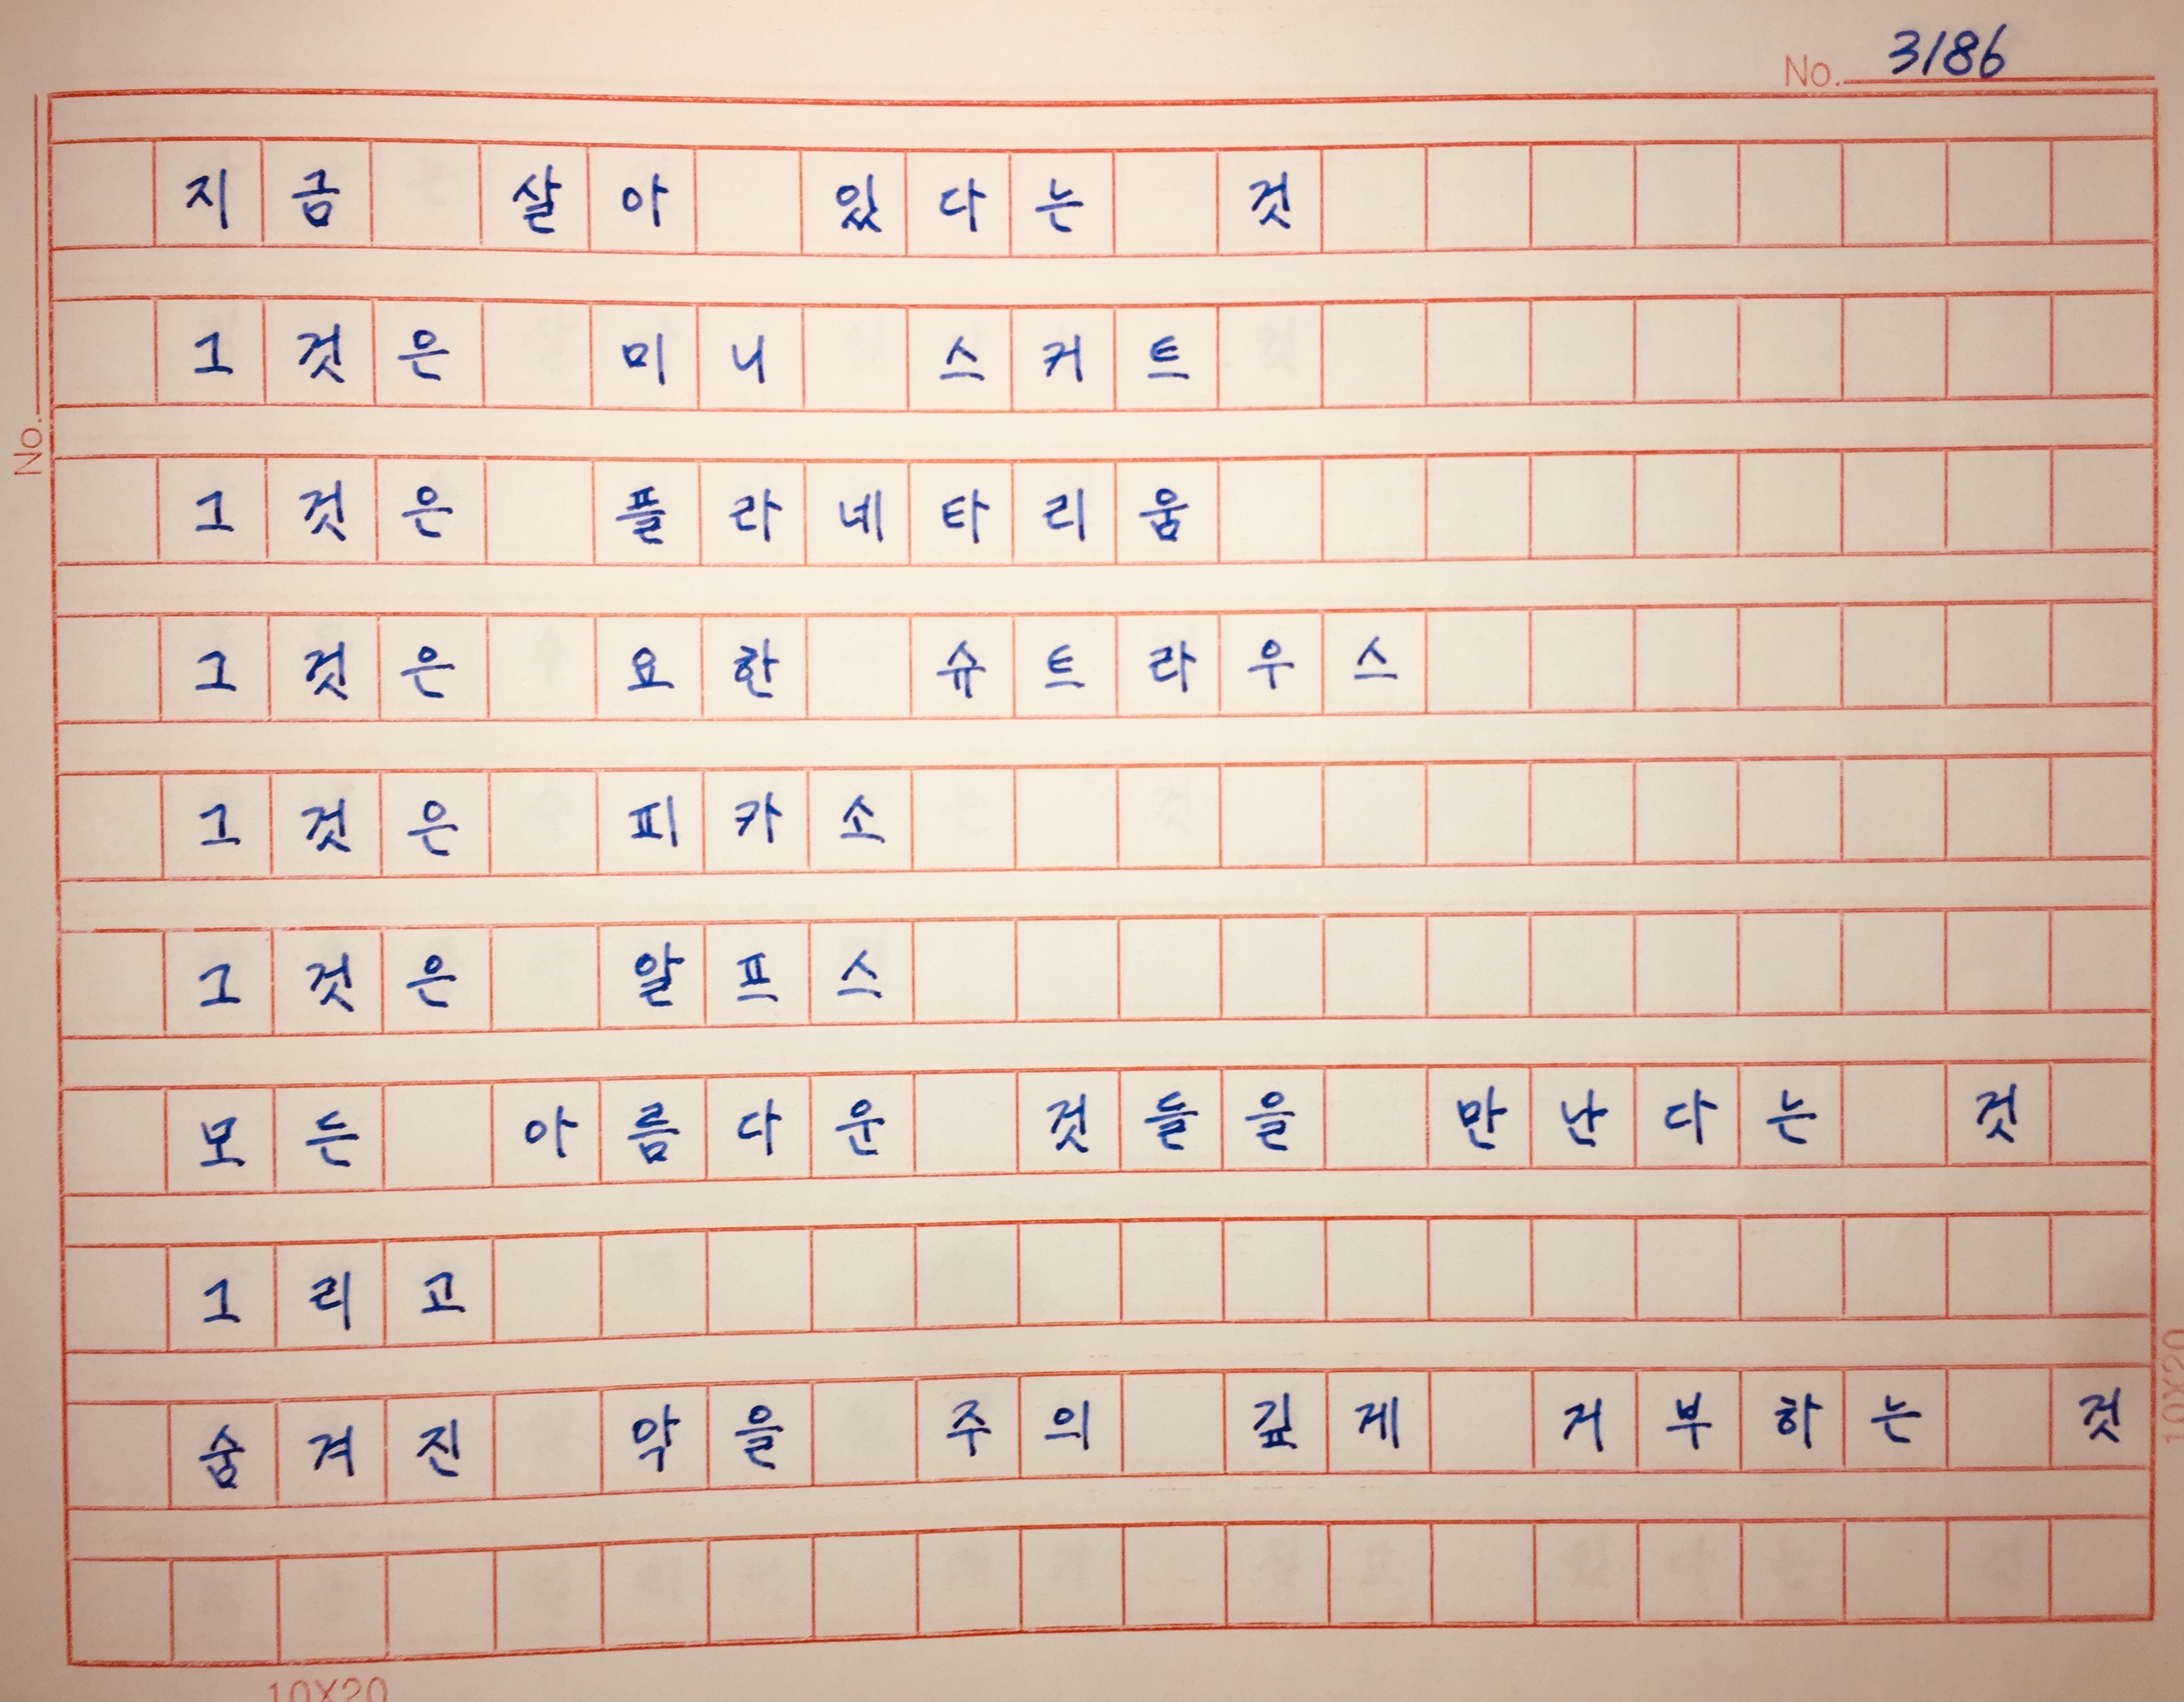 No. 3186
지금 살아 있다는 것
그것은 미니 스커트
No.
그것은 플라네타리움
그것은 요한 슈트라우스
그것은 피카소
그것은 알프스
모든 아름다운 것들을 만난다는 것
그리고
숨겨진 악을 주의 깊게 거부하는 것
10X20
10X20